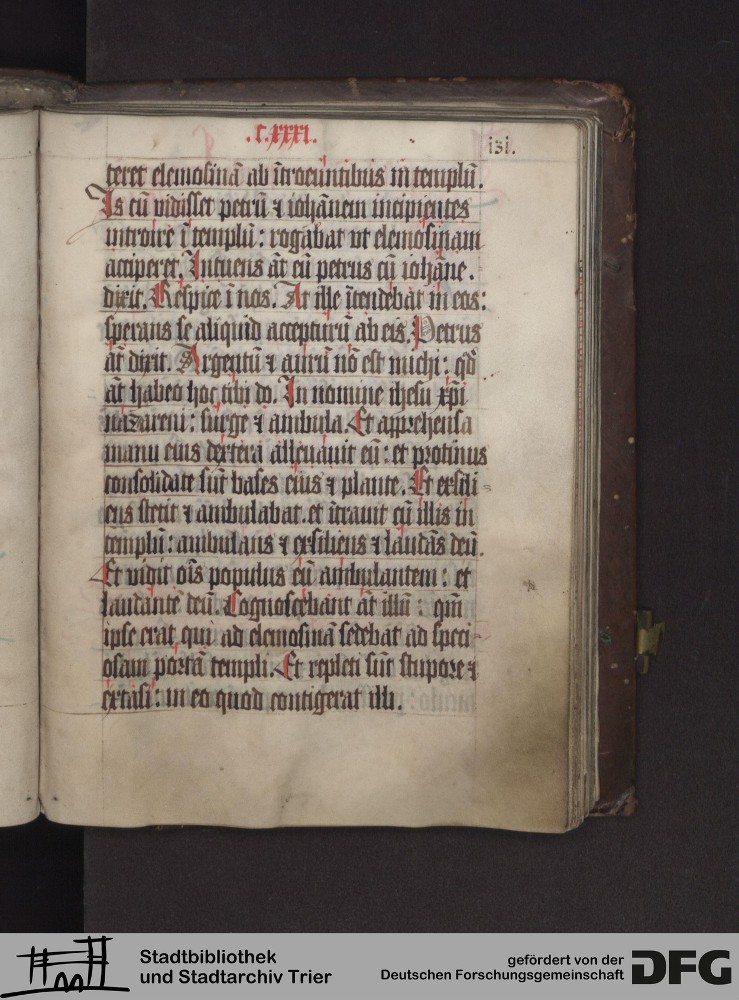 .C.XXXI.
131.
teret elemosinā ab ītroeūntibus in templū.
Is cū vidisset petrū ⁊ iohānem incipientes
introire ī templū : rogabat vt elemosinam
acciperet. Intuens āt cū petrus cū iohāne.
dixit. Respice ī nos. At ille ītendebat in eos :
sperans se aliquid accepturū ab eis. Petrus
āt dixit. Argentū ⁊ aurū nō est michi : qd̄
āt habeo hoc tibi do. In nomine ihesu xp̄i
nazareni : surge ⁊ ambula. Et apprehensa
manu eius dextera alleuauit eū : et protinus
consolidate sūt bases eius ⁊ plante. Et exsili=
ens stetit ⁊ ambulabat. et ītrauit cū illis in
templū : ambulans ⁊ exsiliens ⁊ laudās deū.
Et vidit oīs populus eū ambulantem : et
laudantē deū. Cognoscebant āt illū : qm̄
ipse erat qui ad elemosinā sedebat ad speci-
osam portā templi. Et repleti sūt stupore ⁊
extasi : in eo quod contigerat illi.
Stadtbibliothek
und Stadtarchiv Trier
gefördert von der
Deutschen Forschungsgemeinschaft
DFG